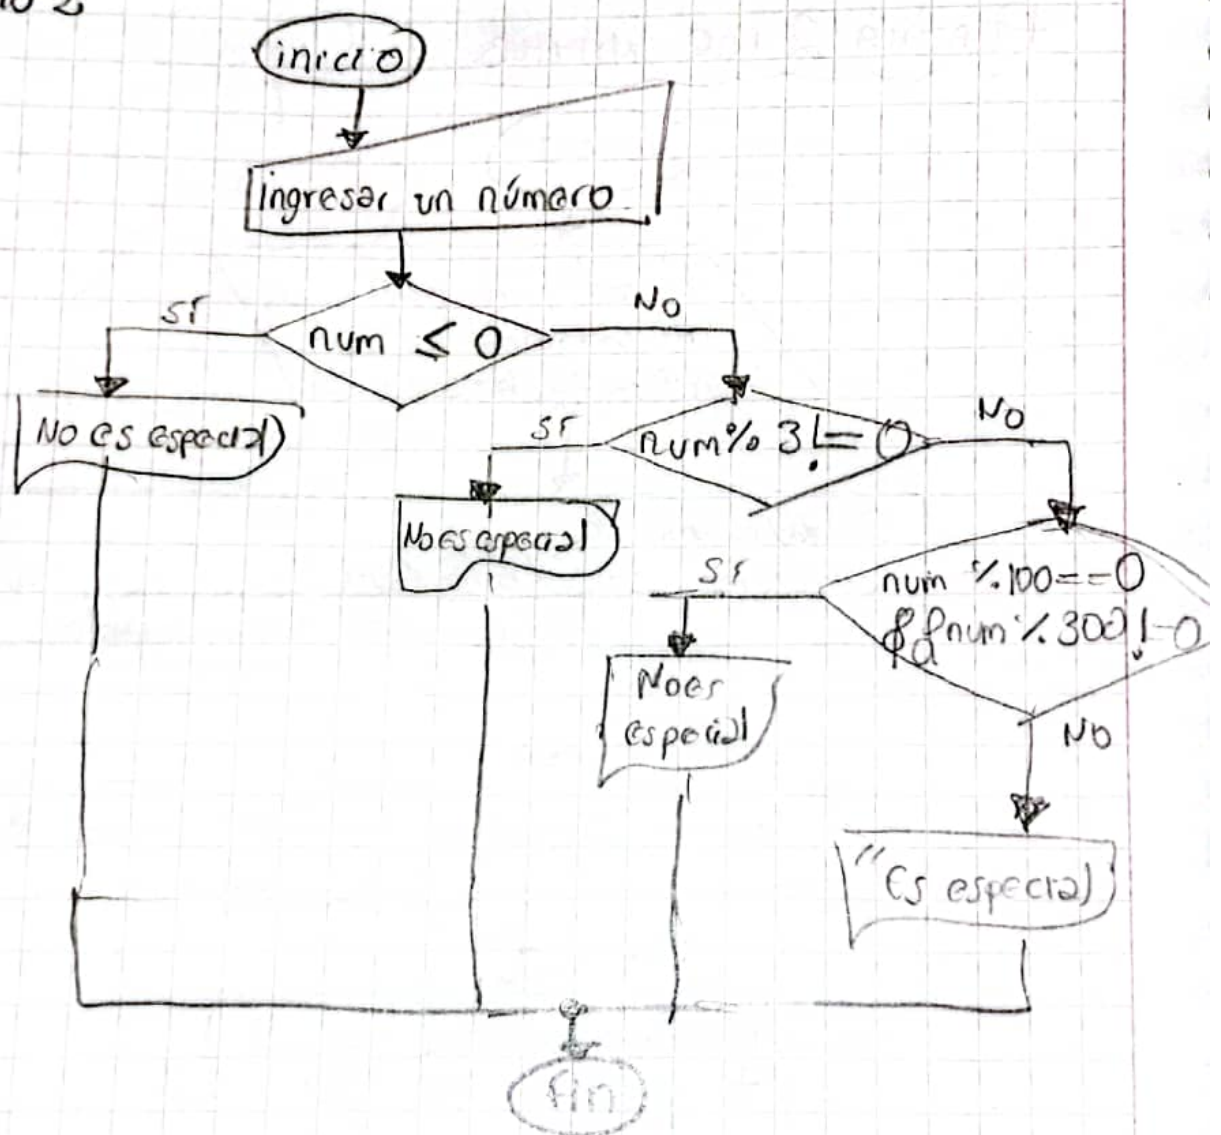 inicio
ingresar un número
SI
num ≤ 0
NO
No es especial
SI
num % 3 != 0
NO
No es especial
SI
num % 100 == 0
&& num % 300 != 0
No es
especial
NO
"Es especial
fin